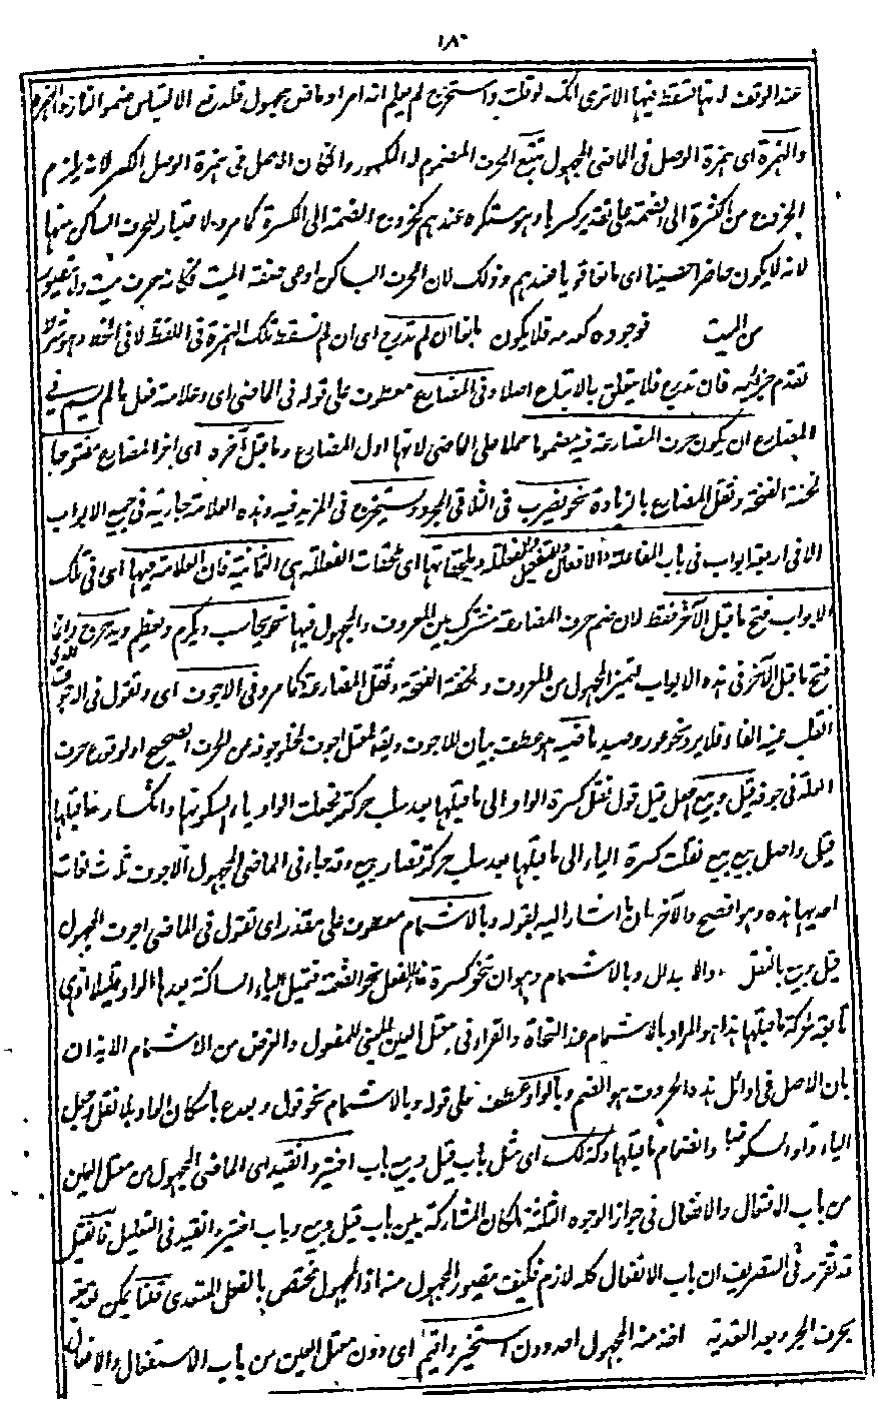 ١٨٠
عند الوقف لانها تسقط فيها الا ترى انك لو قلت واستخرج لم يعلم انه امر او ماض مجهول فلدفع الالتباس ضموا التاء
والهمزة اى همزة الوصل فى الماضى المجهول تتبع الحرف المضموم لا المكسور وان كان الاصل فى همزة الوصل الكسر لانه يلزم
الخروج من الكسرة الى الضمة على تقدير كسرها وهو مستكره عندهم كخروج الضمة الى الكسرة كما مر ولا اعتبار للحرف الساكن بينها
لانه لا يكون حاجزا حصينا اى مانعا قويا عندهم وذلك لان الحرف الساكن ادعى صفة الميت فكانه حرف ميت
من الميت فوجوده كعدمه فلا يكون مانعا ان لم تدرج اى ان لم تسقط تلك الهمزة فى اللفظ لا فى الخط
تقدم جزائه فان تدرج فلا يتعلق بالاتباع اصلا وفى المضارع معطوف على قوله فى الماضى اى وعلامة فعل ما لم يسم فى
المضارع ان يكون حرف المضارعة فيه مضموما حملا على الماضى لانها اول المضارع وما قبل آخره اى آخر المضارع مفتوحا
لخفة الفتحة وثقل المضارع بالزيادة نحو يضرب فى الثلاثى المجرد ويستخرج فى المزيد فيه وهذه العلامة جارية فى جميع الابواب
الا فى اربعة ابواب فى باب المفاعلة والافعال والتفعيل والفعللة وملحقاتها اى ملحقات الفعللة هى الثمانية فان العلامة فيها اى فى تلك
الابواب فتح ما قبل الآخر فقط لان ضم حرف المضارعة مشترك بين المعروف والمجهول فيها نحو يحاسب ويكرم ويعظم ويدحرج وانما
فتح ما قبل الآخر فى هذه الابواب ليتميز المجهول من المعروف ولخفة الفتحة وثقل المضارعة كما مر وفى الاجوف اى وتقول فى الاجوف
انقلب عينه الفا فلا يرد نحو عور وصيد ماضيه هو عطف بيان للاجوف ويقال لمعتل اجوف لخلو جوفه عن الحرف الصحيح او لوقوع حرف
العلة فى جوفه قيل وبيع اصل قيل قول نقل كسرة الواو الى ما قبلها بعد سلب حركته فجعلت الواو ياء لسكونها وانكسار ما قبلها
قيل واصل بيع بيع نقلت كسرة الياء الى ما قبلها بعد سلب حركته فصار بيع وقد جاء فى الماضى المجهول الاجوف ثلاث لغات
احديها هذه وهو افصح والآخران ما اشار اليه بقوله وبالاشمام معطوف على مقدر اى تقول فى الماضى اجوف المجهول
قيل وبيع بالنقل والابدال وبالاشمام وهو ان تنحو كسرة فاء الفعل نحو الضمة فتميل الياء الساكنة بعدها الى الواو قليلا اذ هى
تابعة لحركة ما قبلها هذا هو المراد بالاشمام عند النحاة والقراء فى معتل العين المبنى للمفعول والغرض من الاشمام الايذان
بان الاصل فى اوائل هذه الحروف هو الضم وبالواو عطف على قوله وبالاشمام نحو قول وبوع باسكان الواو بلا نقل وجعل
الياء واوا لسكونها وانضمام ما قبلها وكذلك اى مثل باب قيل وبيع باب اختير وانقيد اى الماضى المجهول من معتل العين
من باب الافتعال والانفعال فى جواز الوجوه الثلثة لمكان المشاركة بين باب قيل وبيع وباب اختير وانقيد فى التعليل فان قيل
قد تقرر فى التصريف ان باب الانفعال كله لازم فكيف يتصور المجهول منه اذ المجهول مختص بالفعل المتعدى قلنا يمكن تعديته
بحرف الجر وبعد التعدية اخذ منه المجهول احد دون استخير واقيم اى دون معتل العين من باب الاستفعال والافعال